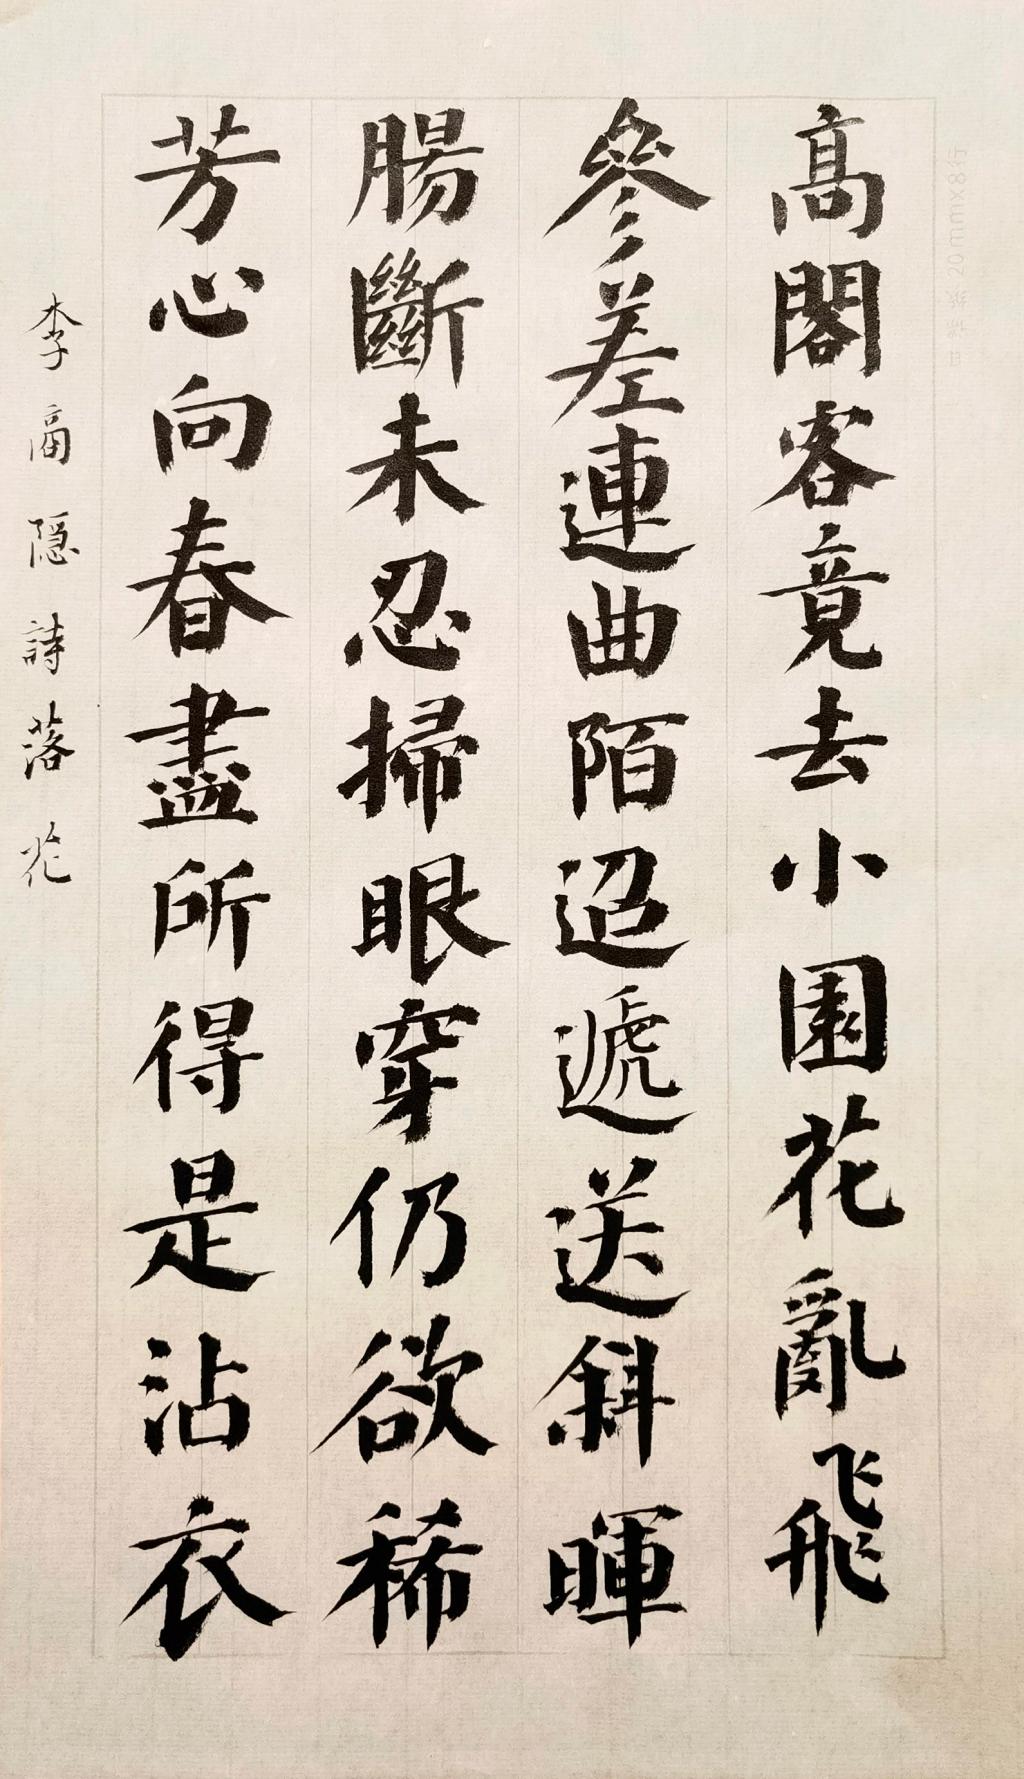 高閣客竟去小園花亂飛
參差連曲陌迢遞送斜暉
腸斷未忍掃眼穿仍欲稀
芳心向春盡所得是沾衣
李商隱詩落花